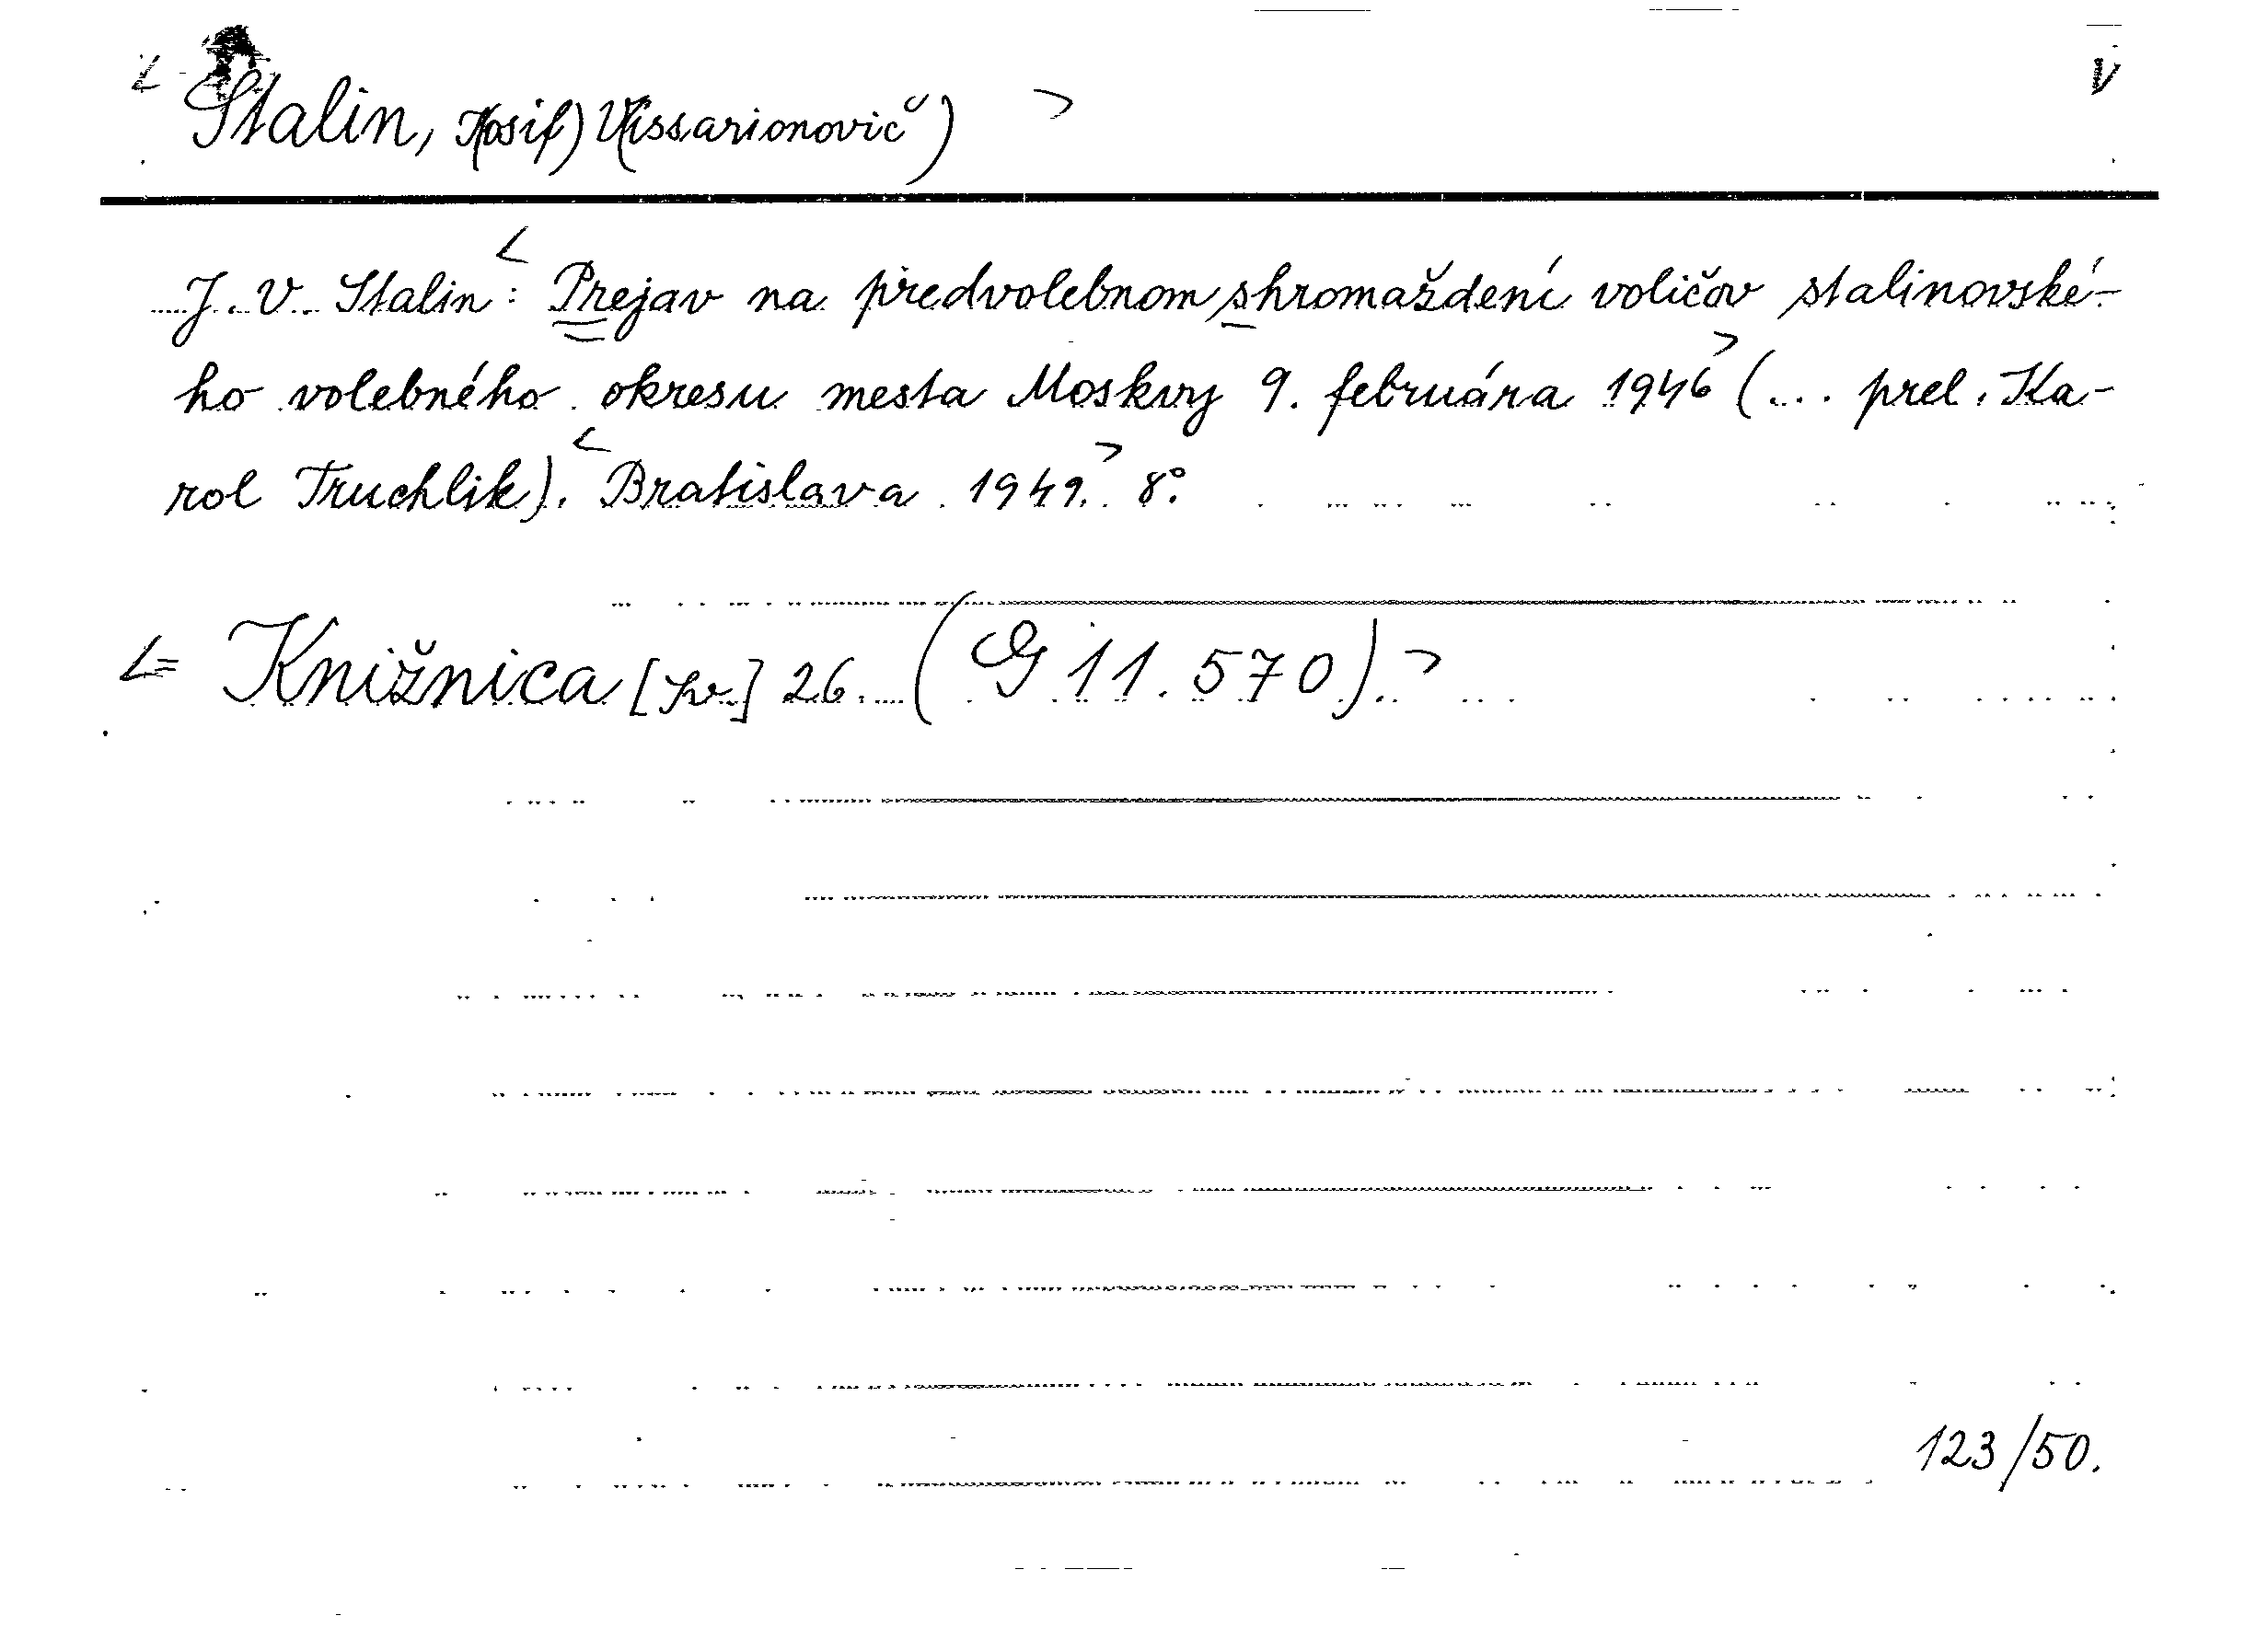 Stalin, J(osif) V(issarionovič)
V
J. V. Stalin: Prejav na předvolebnom shromaždení voličov stalinovské-
ho volebného okresu mesta Moskvy 9. februára 1946 (... prel. Ka-
rol Truchlik). Bratislava 1949. 8°.
= Knižnica [sv.] 26. (G 11.570).
123/50.